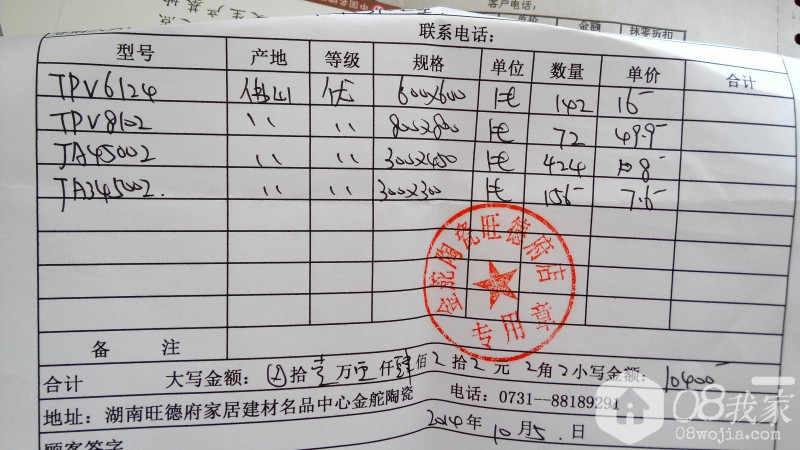 客户电话:
单价 金额 抹零折扣
联系电话:
型号 产地 等级 规格 单位 数量 单价 合计
TPV6124 佛山 优 600x600 片 142 16-
TPV8102 〃 〃 800x800 片 72 49.9-
JA45002 〃 〃 300x450 片 424 10.8-
JA345002. 〃 〃 300x300 片 156 7.6-
金舵陶瓷旺德府店
专用章
备注
合计 大写金额: 拾壹万零仟肆佰 拾 元 角 小写金额: 10400-
地址: 湖南旺德府家居建材名品中心金舵陶瓷 电话: 0731--88189291
2014年10月5.日
顾客签字
08我家
08wojia.com